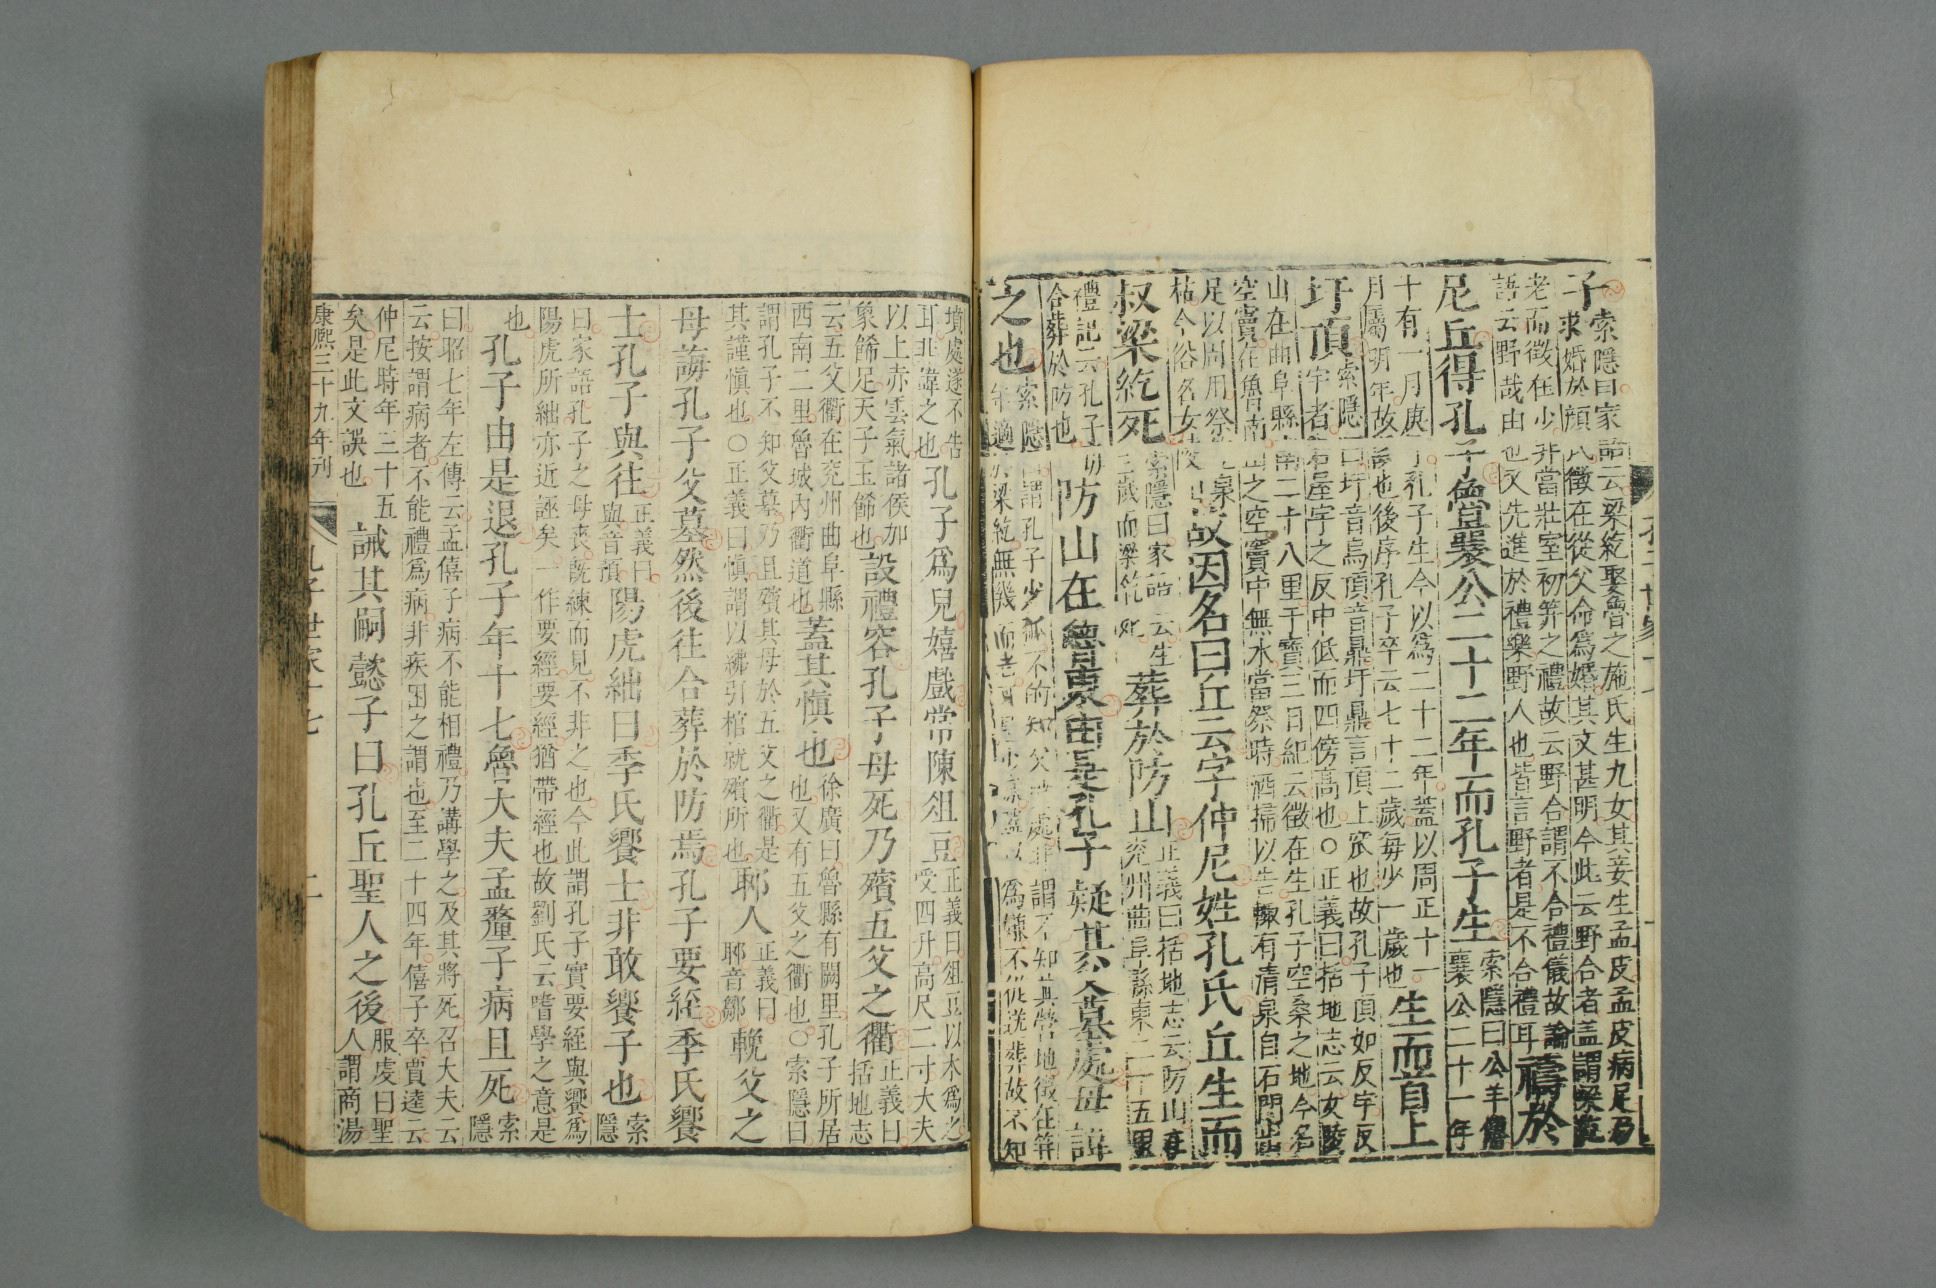 子索隱曰家語云梁紇娶魯之施氏生九女其妾生孟皮孟皮病足乃求婚於顏氏徵在從父命爲婚其文甚明今此云野合者蓋謂梁紇
老而徵在少非當壯室初笄之禮故云野合謂不合禮儀故論語云野哉由也又先進於禮樂野人也皆言野者是不合禮耳禱於
尼丘得孔子魯襄公二十二年而孔子生索隱曰公羊傳襄公二十一年
十有一月庚子孔子生今以爲二十二年蓋以周正十一月屬明年故誤也後序孔子卒云七十二歲每少一歲也生而首上
圩頂索隱曰圩音烏頂音鼎圩鼎言頂上窳也故孔子頂如反宇反宇者若屋宇之反中低而四傍高也○正義曰括地志云女陵
山在曲阜縣南二十八里干寶三日紀云徵在生孔子空桑之地今名空竇在魯南山之空竇中無水當祭時洒掃以告輒有清泉自石門出
足以周用祭泉枯今俗名女陵故因名曰丘云字仲尼姓孔氏丘生而
叔梁紇死索隱曰家語云生三歲而梁紇死葬於防山正義曰括地志云防山在兗州曲阜縣東二十五里
禮記云孔子母合葬於防也防山在魯東由是孔子疑其父墓處母諱
之也索隱曰謂孔子少孤不的知父墳處非謂不知其塋地徵在笄年適於梁紇無幾而老死是少寡蓋以爲嫌不從送葬故不知
墳處遂不告耳非諱之也孔子爲兒嬉戲常陳俎豆正義曰俎豆以木爲之受四升高尺二寸大夫
以上赤雲氣諸侯加象飾足天子玉飾也設禮容孔子母死乃殯五父之衢正義曰括地志
云五父衢在兗州曲阜縣西南二里魯城內衢道也蓋其愼也徐廣曰魯縣有闕里孔子所居也又有五父之衢也○索隱曰
謂孔子不知父墓乃且殯其母於五父之衢是其謹愼也○正義曰愼謂以紼引棺就殯所也郰人正義曰郰音鄒輓父之
母誨孔子父墓然後往合葬於防焉孔子要絰季氏饗
士孔子與往正義曰與音預陽虎絀曰季氏饗士非敢饗子也索隱
曰家語孔子之母喪旣練而見不非之也今此謂孔子實要絰與饗爲陽虎所絀亦近誣矣一作要經要經猶帶經也故劉氏云嗜學之意是
也孔子由是退孔子年十七魯大夫孟釐子病且死索隱
曰昭七年左傳云孟僖子病不能相禮乃講學之及其將死召大夫云云按謂病者不能禮爲病非疾困之謂也至二十四年僖子卒賈逵云
仲尼時年三十五矣是此文誤也誡其嗣懿子曰孔丘聖人之後服虔曰聖人謂商湯
康熙三十九年刊 孔子世家十七 二